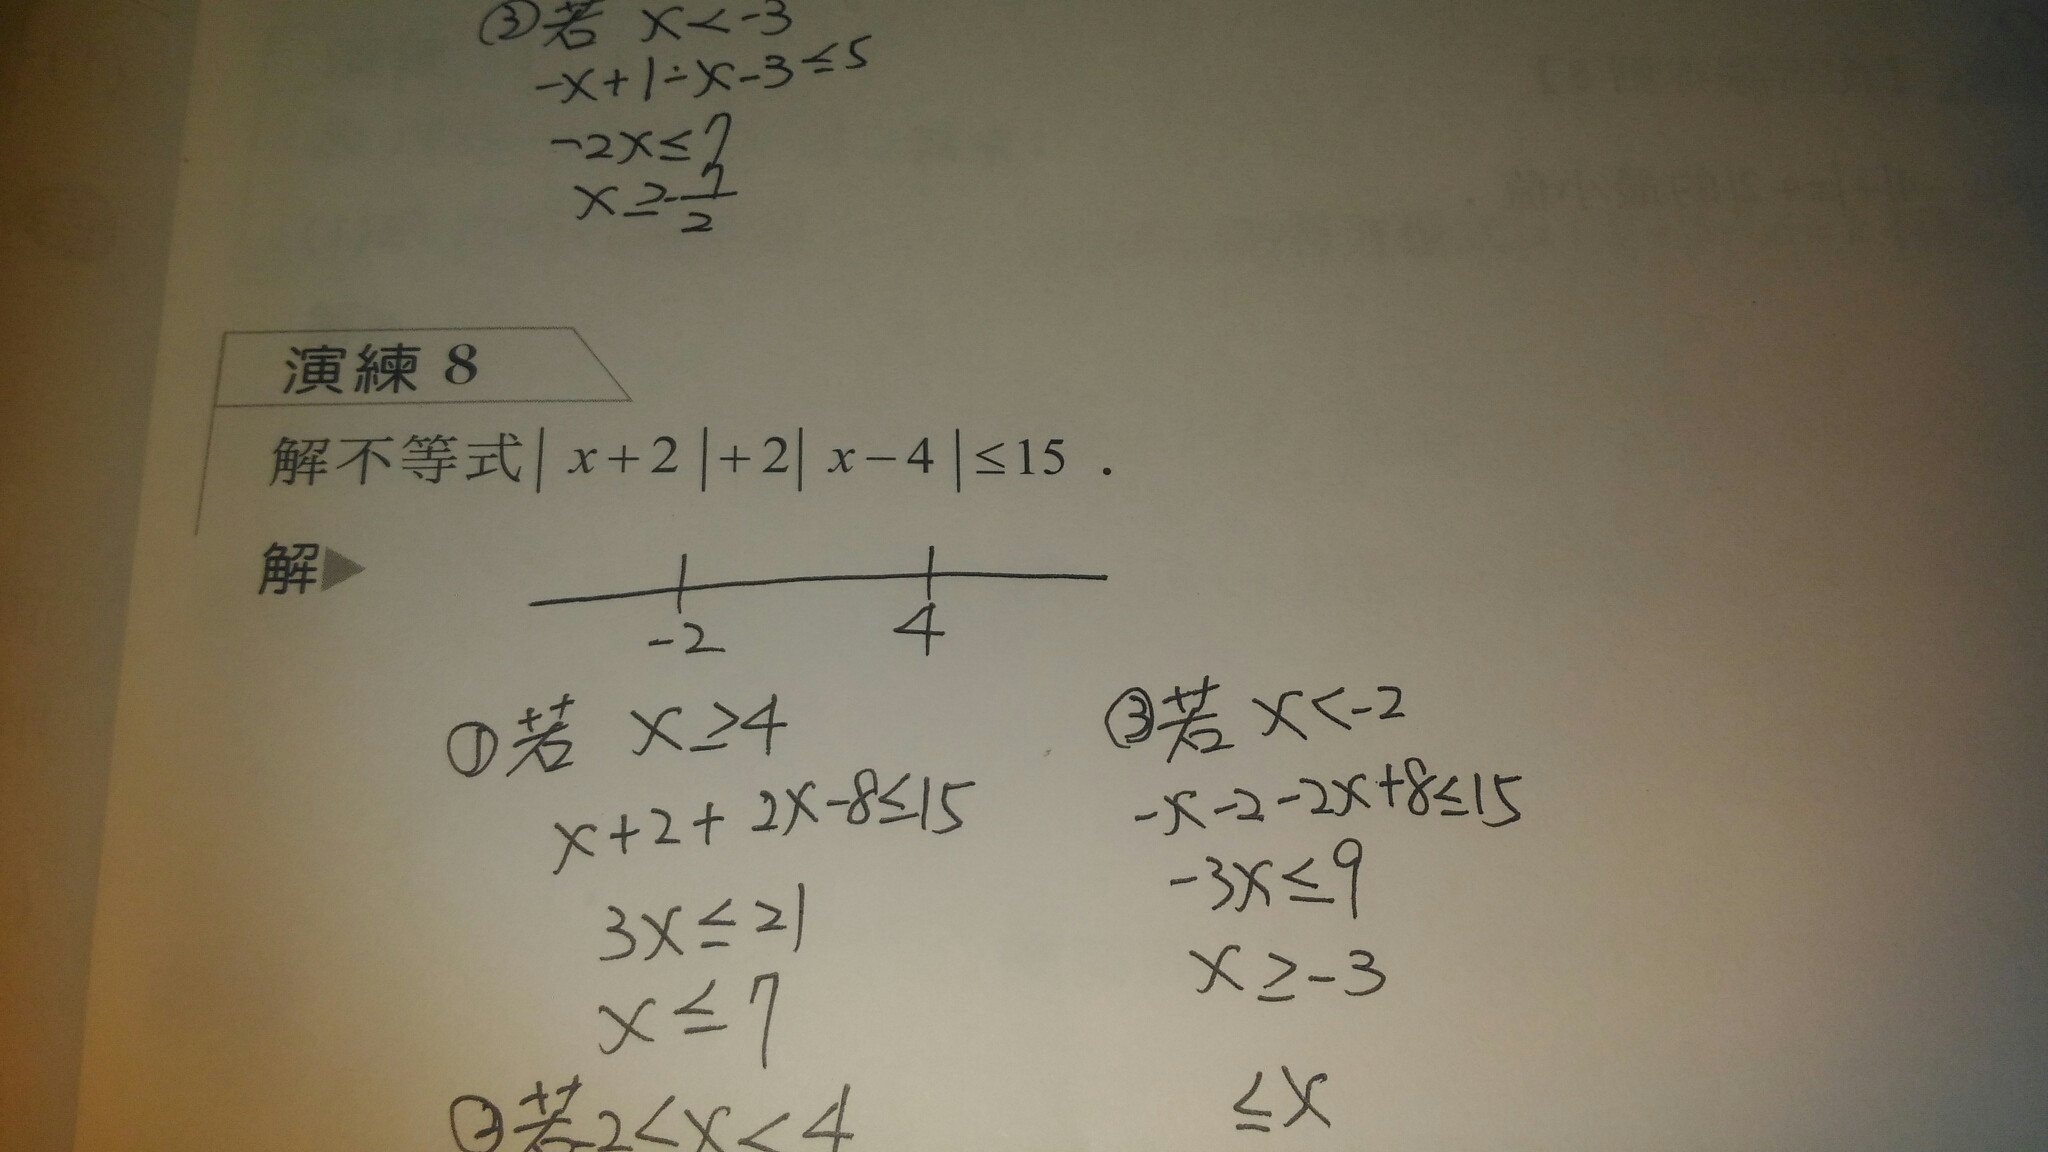 ③若 x<-3
-x+1-x-3≤5
-2x≤7
x≥-7/2
演練 8
解不等式|x+2|+2|x-4|≤15．
解▶
-2 4
①若 x≥4
x+2+2x-8≤15
3x≤21
x≤7
②若-2<x<4
③若 x<-2
-x-2-2x+8≤15
-3x≤9
x≥-3
≤x